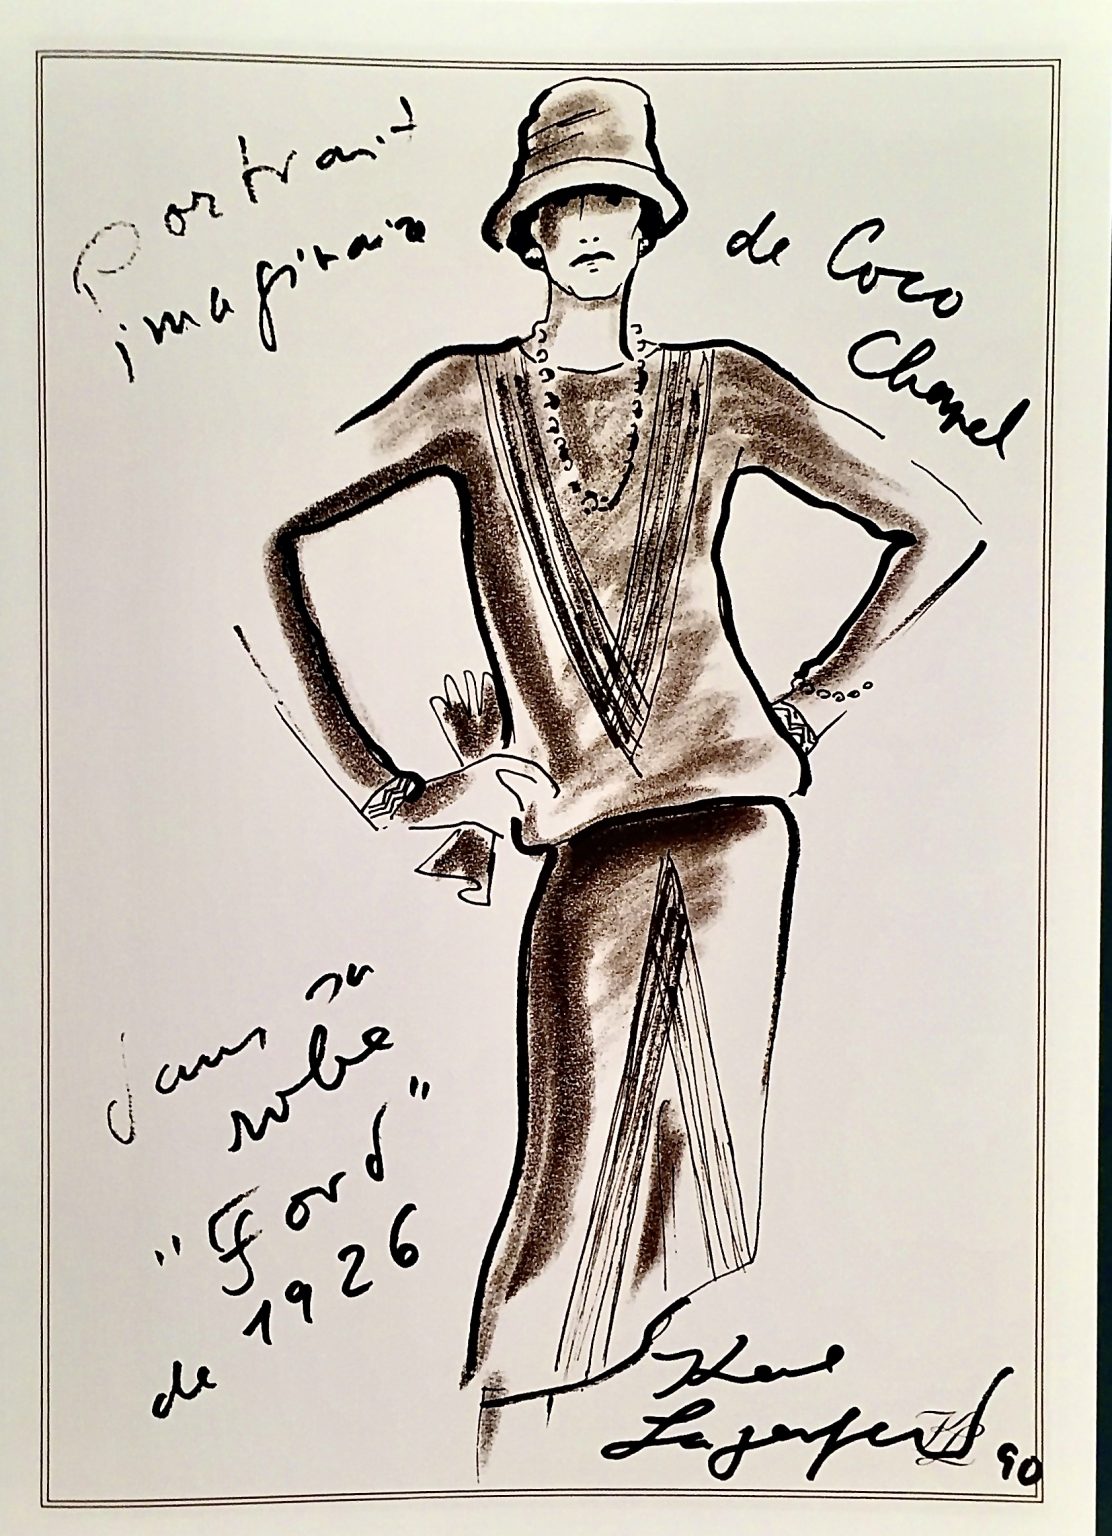 Portrait
imaginaire
de Coco
Chanel
dans sa
robe
"Ford"
de 1926
Karl
Lagerfeld 90
KL